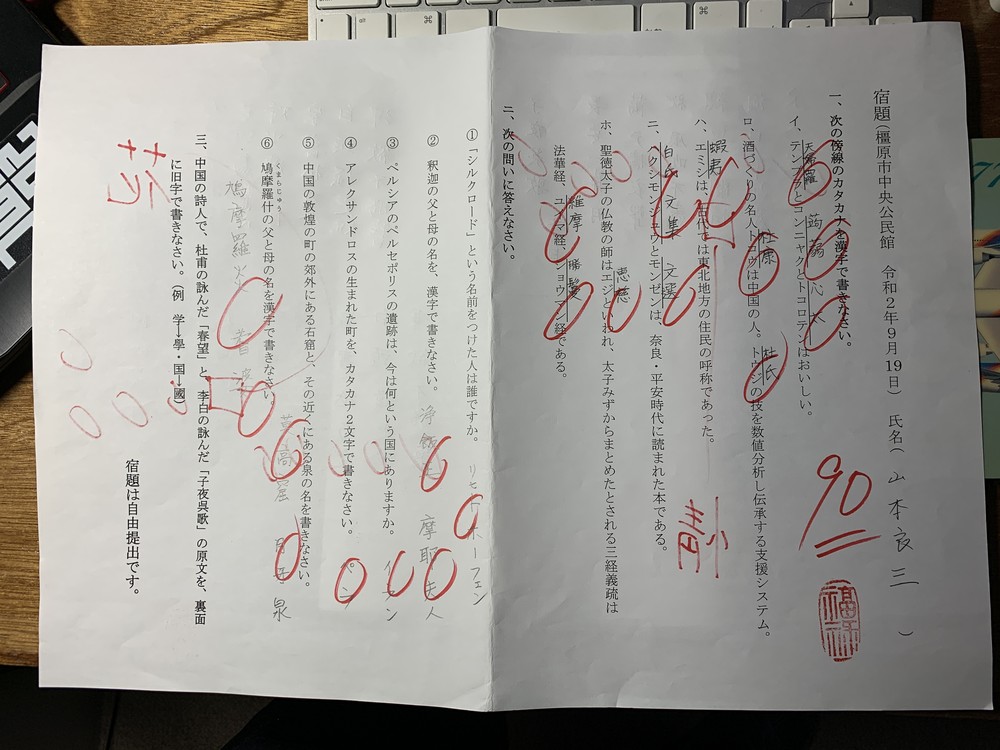 宿題(橿原市中央公民館 令和2年9月19日) 氏名(山本良三 )
90
一、次の傍線のカタカナを漢字で書きなさい。
天麩羅 蒟蒻 心太
イ、テンプラとコンニャクとトコロテンはおいしい。
杜康 杜氏
ロ、酒づくりの名人トコウは中国の人。トウジの技を数値分析し伝承する支援システム。
蝦夷
ハ、エミシは、古代では東北地方の住民の呼称であった。
白氏文集 文選
ニ、ハクシモンジュウとモンゼンは、奈良・平安時代に読まれた本である。
恵慈
ホ、聖徳太子の仏教の師はエジといわれ、太子みずからまとめたとされる三経義疏は
維摩 勝鬘
法華経、ユイマ経、ショウマン経である。
二、次の問いに答えなさい。
①「シルクロード」という名前をつけた人は誰ですか。 リヒトホーフェン
② 釈迦の父と母の名を、漢字で書きなさい。 浄飯王 摩耶夫人
③ ペルシアのペルセポリスの遺跡は、今は何という国にありますか。 イラン
④ アレクサンドロスの生まれた町を、カタカナ2文字で書きなさい。 ペラ
⑤ 中国の敦煌の町の郊外にある石窟と、その近くにある泉の名を書きなさい。
莫高窟 月牙泉
⑥ 鳩摩羅什の父と母の名を漢字で書きなさい。
くまらじゅう
鳩摩羅炎 耆婆
三、中国の詩人で、杜甫の詠んだ「春望」と、李白の詠んだ「子夜呉歌」の原文を、裏面
に旧字で書きなさい。(例 学→學・国→國)
宿題は自由提出です。